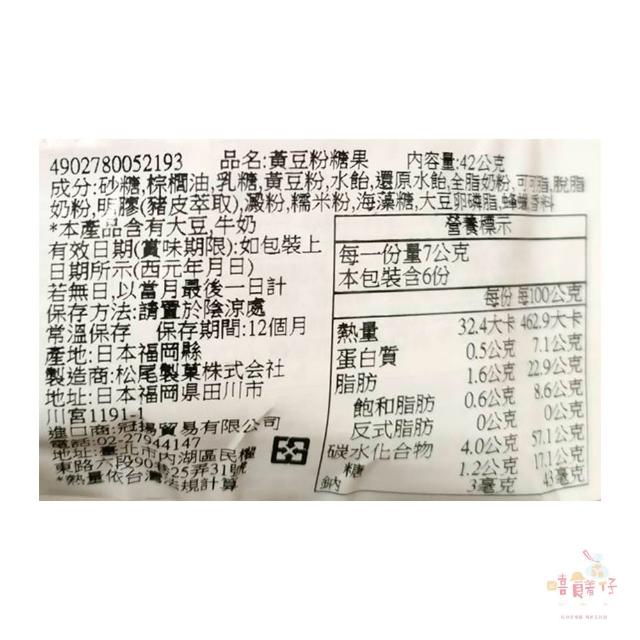 4902780052193 品名:黃豆粉糖果 內容量:42公克
成分:砂糖,棕櫚油,乳糖,黃豆粉,水飴,還原水飴,全脂奶粉,可可脂,脫脂
奶粉,明膠(豬皮萃取),澱粉,糯米粉,海藻糖,大豆卵磷脂,蜂蠟,香料
*本產品含有大豆,牛奶
有效日期(賞味期限):如包裝上
日期所示(西元年月日)
若無日,以當月最後一日計
保存方法:請置於陰涼處
常溫保存 保存期間:12個月
產地:日本福岡縣
製造商:松尾製菓株式会社
地址:日本福岡県田川市
川宮1191-1
進口商:冠揚貿易有限公司
電話:02-27944147
地址:臺北市內湖區民權
東路六段90巷25弄31號
*熱量依台灣法規計算
營養標示
每一份量7公克
本包裝含6份
每份 每100公克
熱量 32.4大卡 462.9大卡
蛋白質 0.5公克 7.1公克
脂肪 1.6公克 22.9公克
飽和脂肪 0.6公克 8.6公克
反式脂肪 0公克 0公克
碳水化合物 4.0公克 57.1公克
糖 1.2公克 17.1公克
鈉 3毫克 43毫克